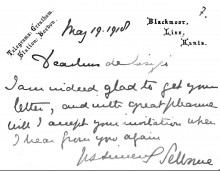 7.
Telegrams: Greatham.
Station: Bordon.
May 19. 1918
Blackmoor,
Liss,
Hants.
Dear
I am indeed glad to get your
letter, and with great pleasure
will I accept your invitation when
I hear from you again
Yrs sincerely Selborne